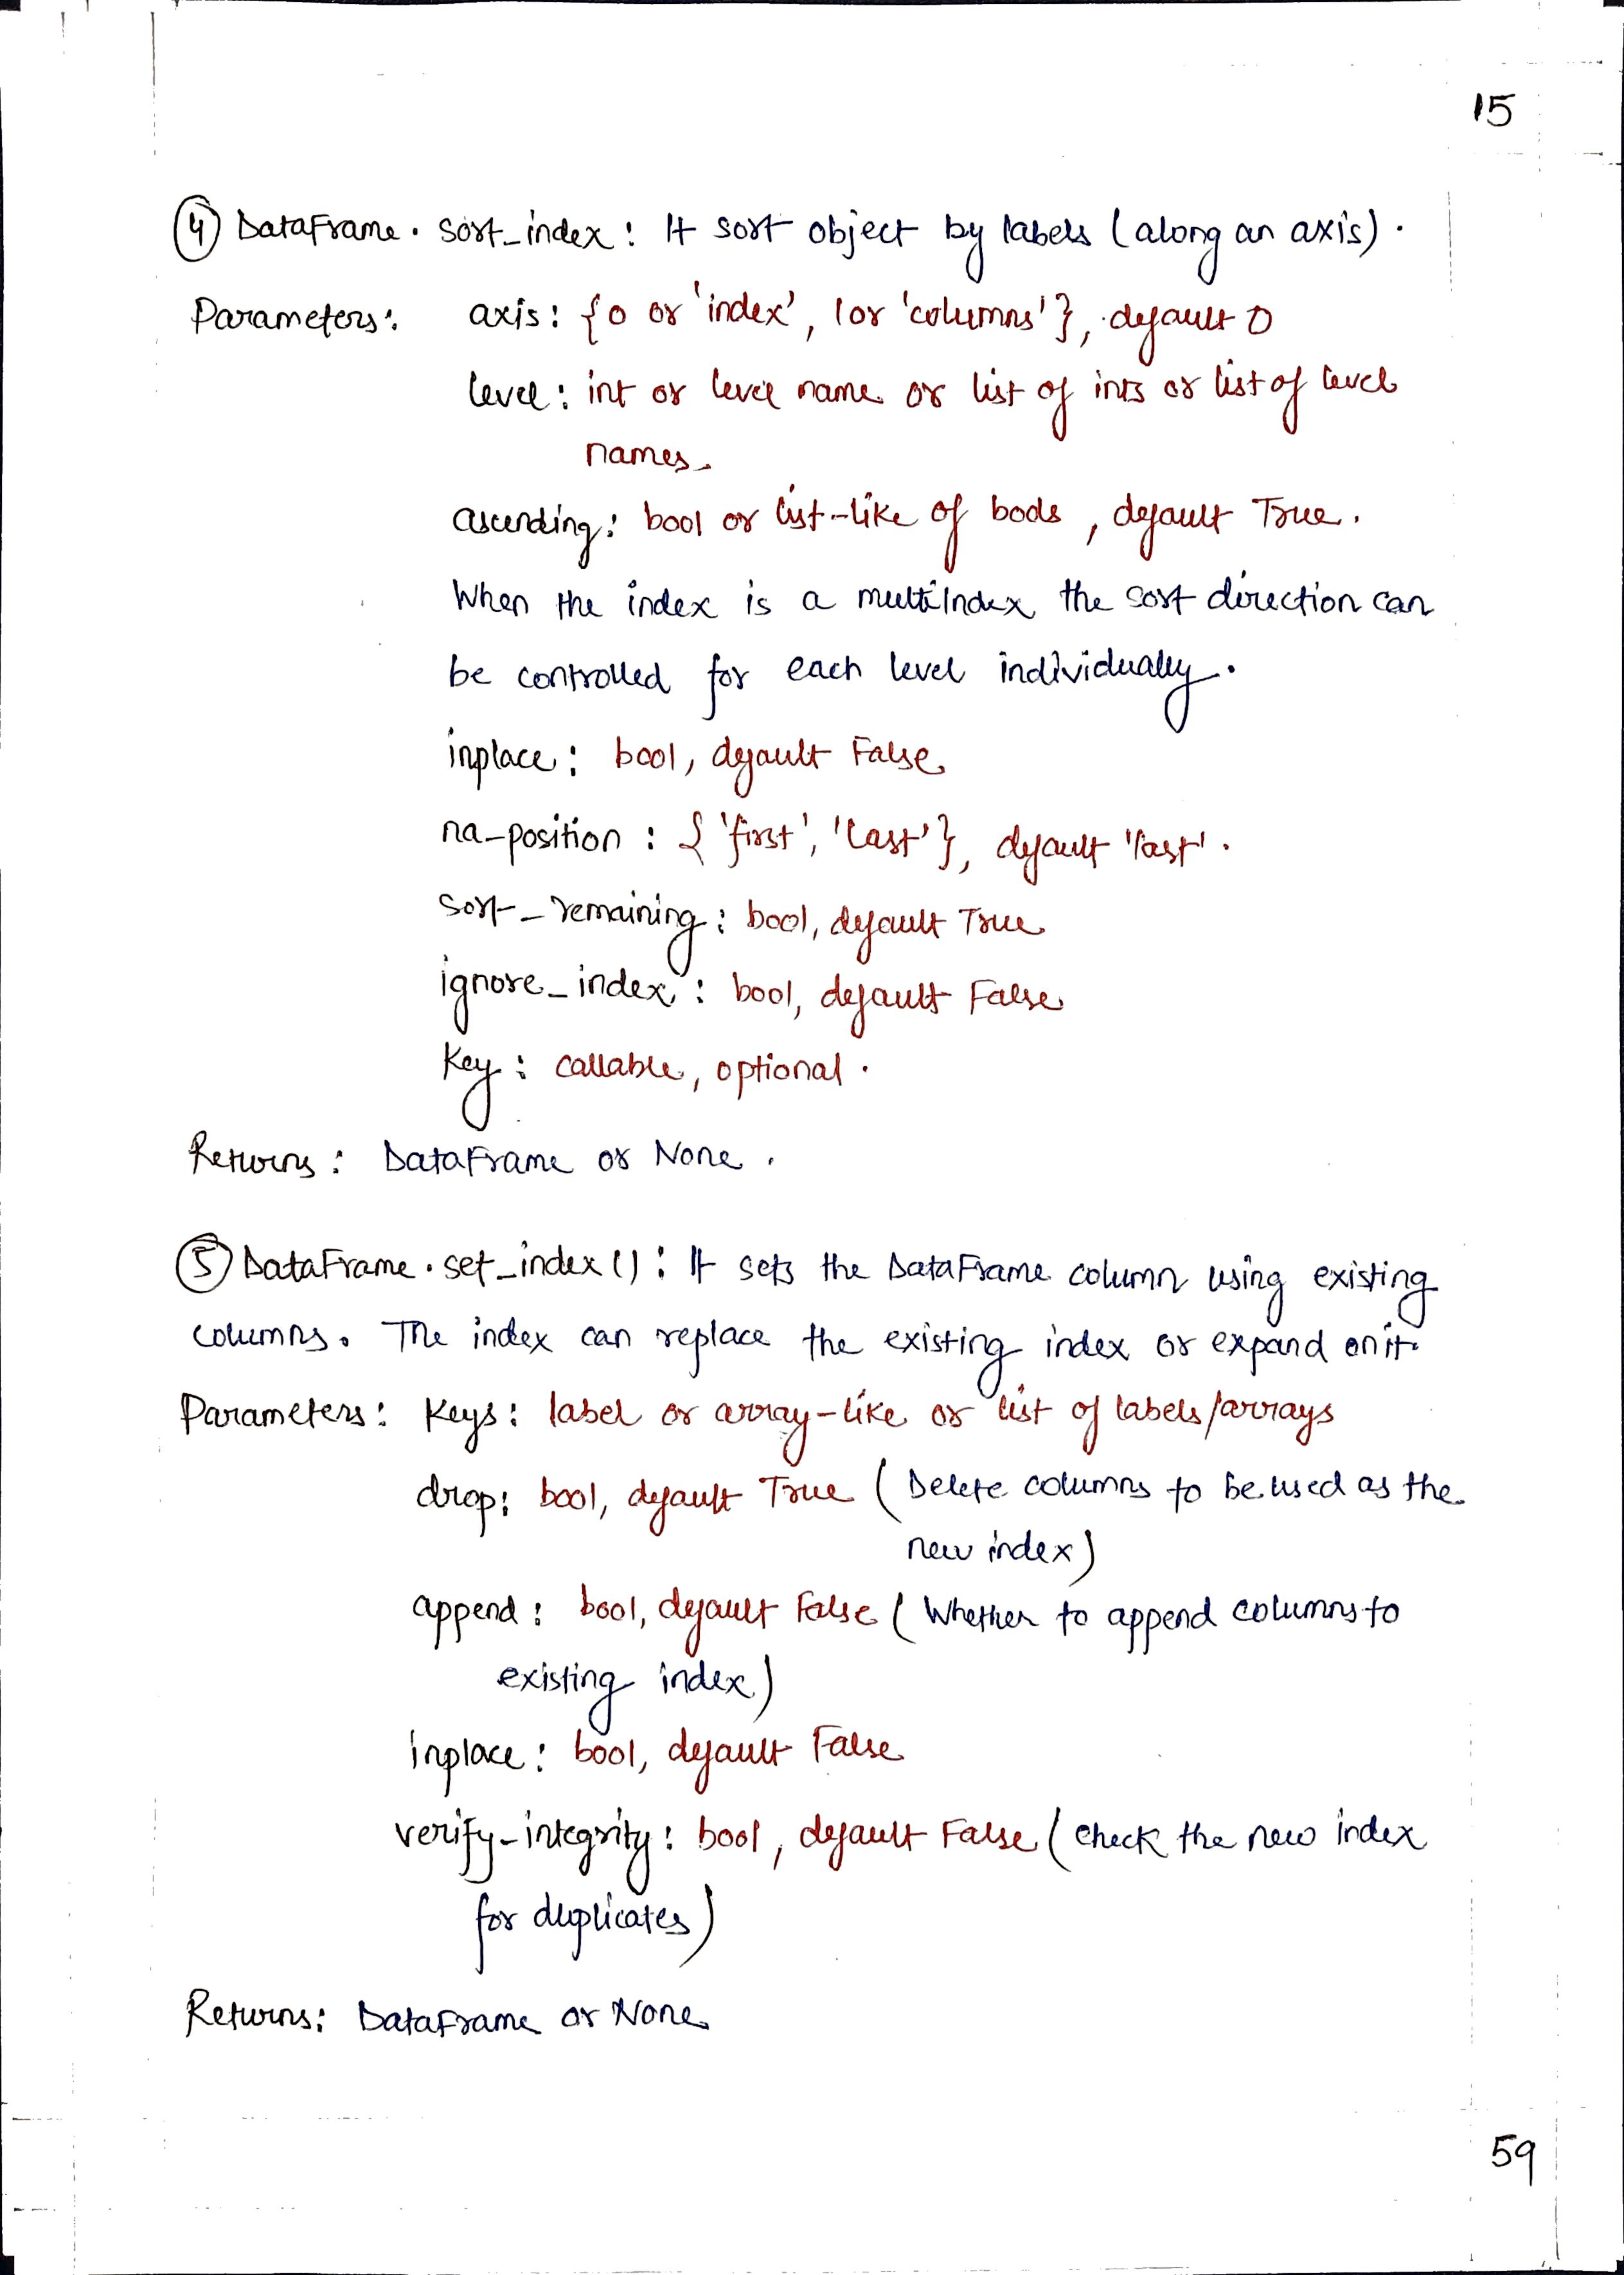 15
④ DataFrame. sort_index: It sort object by labels (along an axis).
Parameters: axis: {0 or 'index', 1 or 'columns'}, default 0
level: int or level name or list of ints or list of level
names.
ascending: bool or list-like of bools, default True.
When the index is a multiIndex the sort direction can
be controlled for each level individually.
inplace: bool, default False
na-position: {'first', 'last'}, default 'last'.
sort_remaining: bool, default True
ignore_index: bool, default False
Key: callable, optional.
Returns: DataFrame or None.
⑤ DataFrame. set_index(): It sets the DataFrame column using existing
columns. The index can replace the existing index or expand on it.
Parameters: Keys: label or array-like or list of labels/arrays
drop: bool, default True (Delete columns to be used as the
new index)
append: bool, default False (Whether to append columns to
existing index)
inplace: bool, default False
verify-integrity: bool, default False (check the new index
for duplicates)
Returns: DataFrame or None
59